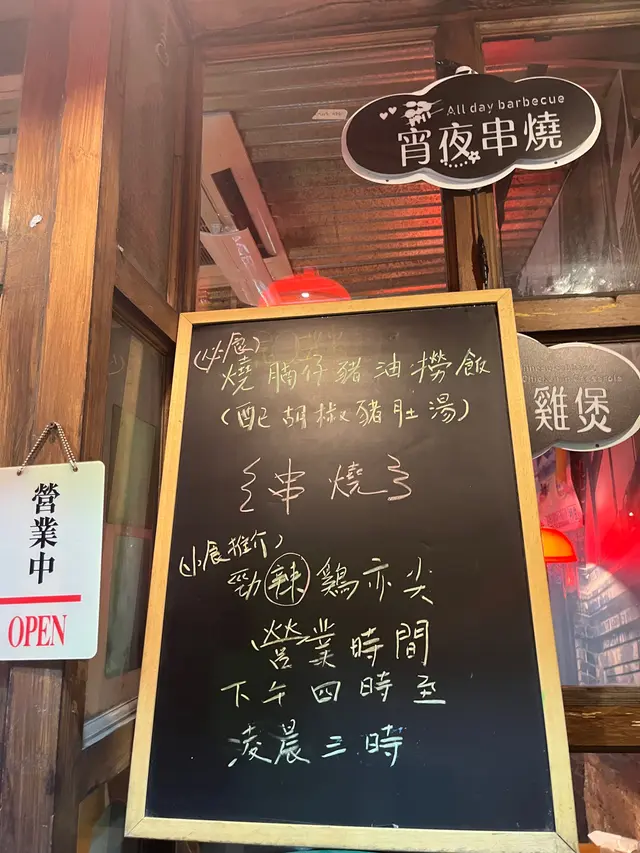 All day barbecue
宵夜串燒
雞煲
(小食)
燒腩仔豬油撈飯
(配胡椒豬肚湯)
{串燒}
(小食推介)
勁辣鷄亦尖
營業時間
下午四時至
凌晨三時
營業中
OPEN